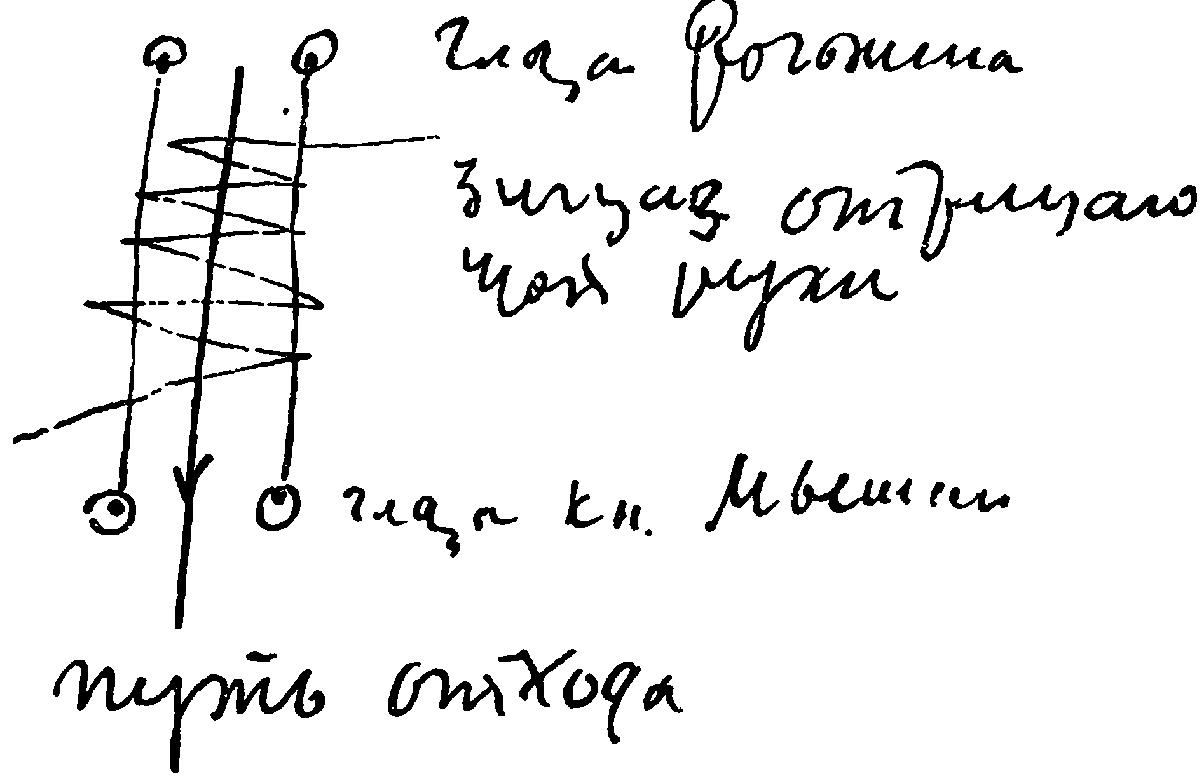 глаза Рогожина
зигзаг отрицаю
щей руки
глаза кн. Мышки
путь отхода